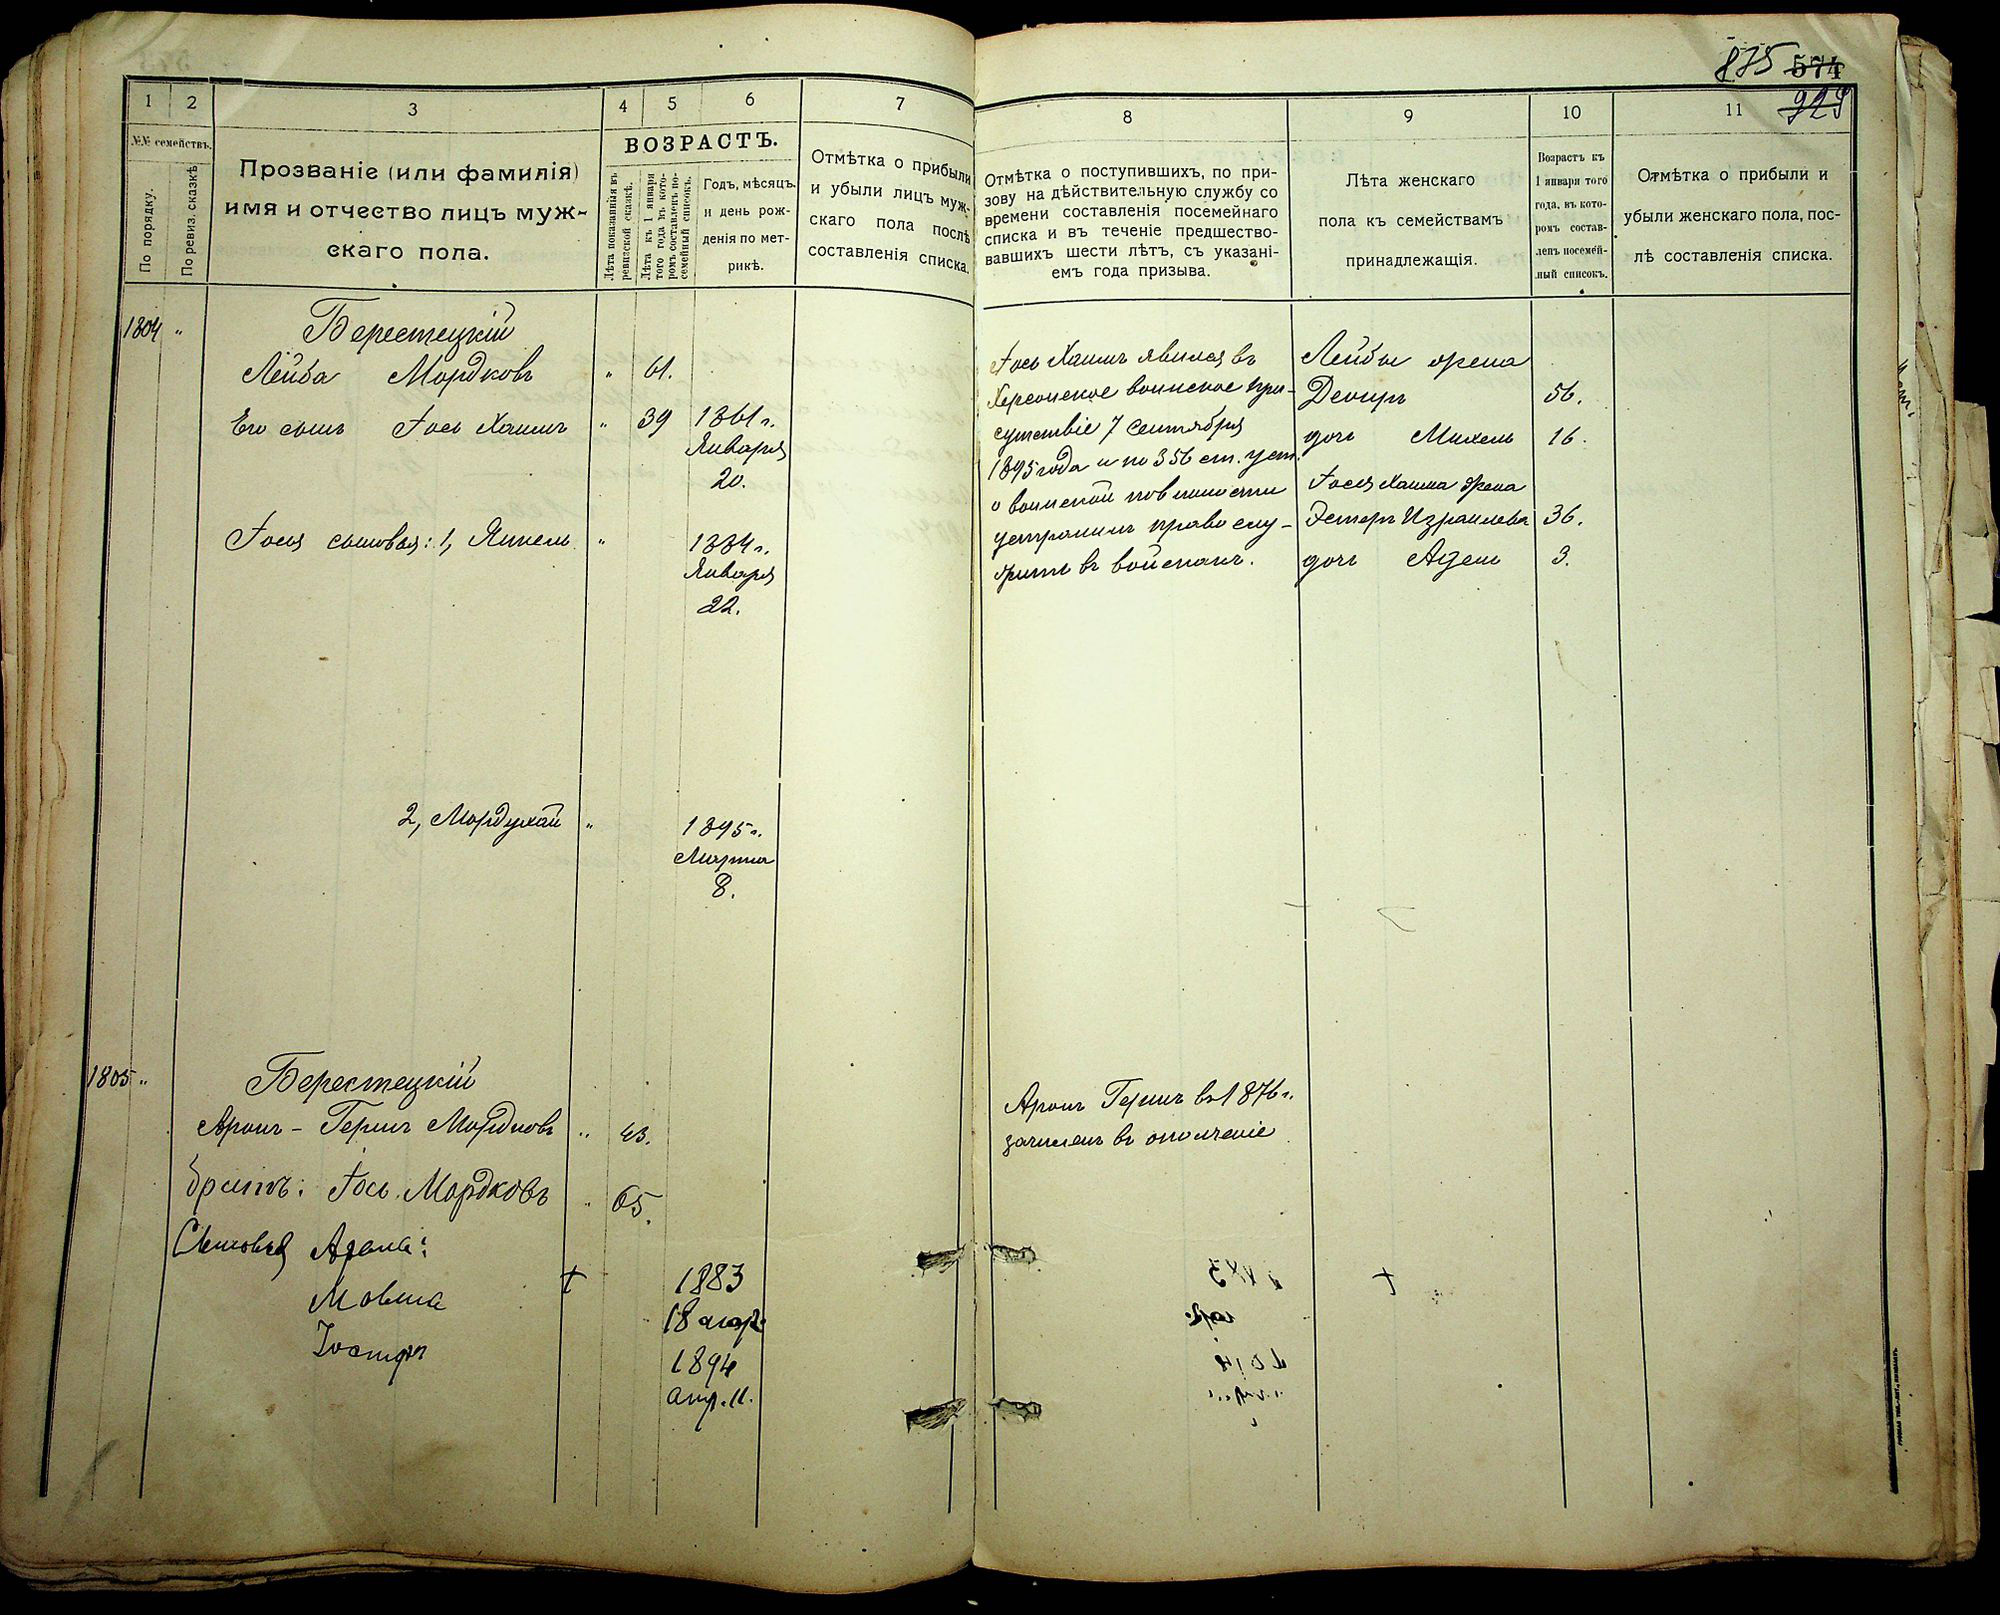 875 574
929
1 2 3 4 5 6 7
№№ семействъ.
По порядку.
По ревиз. сказкѣ
Прозваніе (или фамилія)
имя и отчество лицъ муж-
скаго пола.
ВОЗРАСТЪ.
Лѣта показанныя въ
ревизской сказкѣ.
Лѣта къ 1 января
того года въ кото-
ромъ составленъ по-
семейный списокъ.
Годъ, мѣсяцъ
и день рож-
денія по мет-
рикѣ.
Отмѣтка о прибыли
и убыли лицъ муж-
скаго пола послѣ
составленія списка.
8 9 10 11
Отмѣтка о поступившихъ, по при-
зову на дѣйствительную службу со
времени составленія посемейнаго
списка и въ теченіе предшество-
вавшихъ шести лѣтъ, съ указані-
емъ года призыва.
Лѣта женскаго
пола къ семействамъ
принадлежащія.
Возрастъ къ
1 января того
года, въ кото-
ромъ состав-
ленъ посемей-
ный списокъ.
Отмѣтка о прибыли и
убыли женскаго пола, пос-
лѣ составленія списка.
1804 "
Берестецкій
Лейба Мордковъ " 61.
Его сынъ Іось Хаимъ " 39 1861 г.
Января
20.
Іося сыновья: 1, Янкель " 1884 г.
Января
22.
2, Мордухай " 1895 г.
Марта
8.
Іось Хаимъ явился въ
Херсонское воинское при-
сутствіе 7 сентября
1895 года и по 356 ст. уст.
о воинской повинности
устраненъ право слу-
жить въ войскахъ.
Лейбы жена
Двойра 56.
дочь Михель 16.
Іося Хаима жена
Эстеръ Израилева 36.
дочь Адель 3.
1805 "
Берестецкій
Аронъ-Гершъ Мордковъ " 43.
братъ: Іось Мордковъ " 65.
Сыновья Арона:
Мовша † 1883
18 апр.
1894
апр. 11.
Аронъ Гершъ въ 1876 г.
зачисленъ въ ополченіе